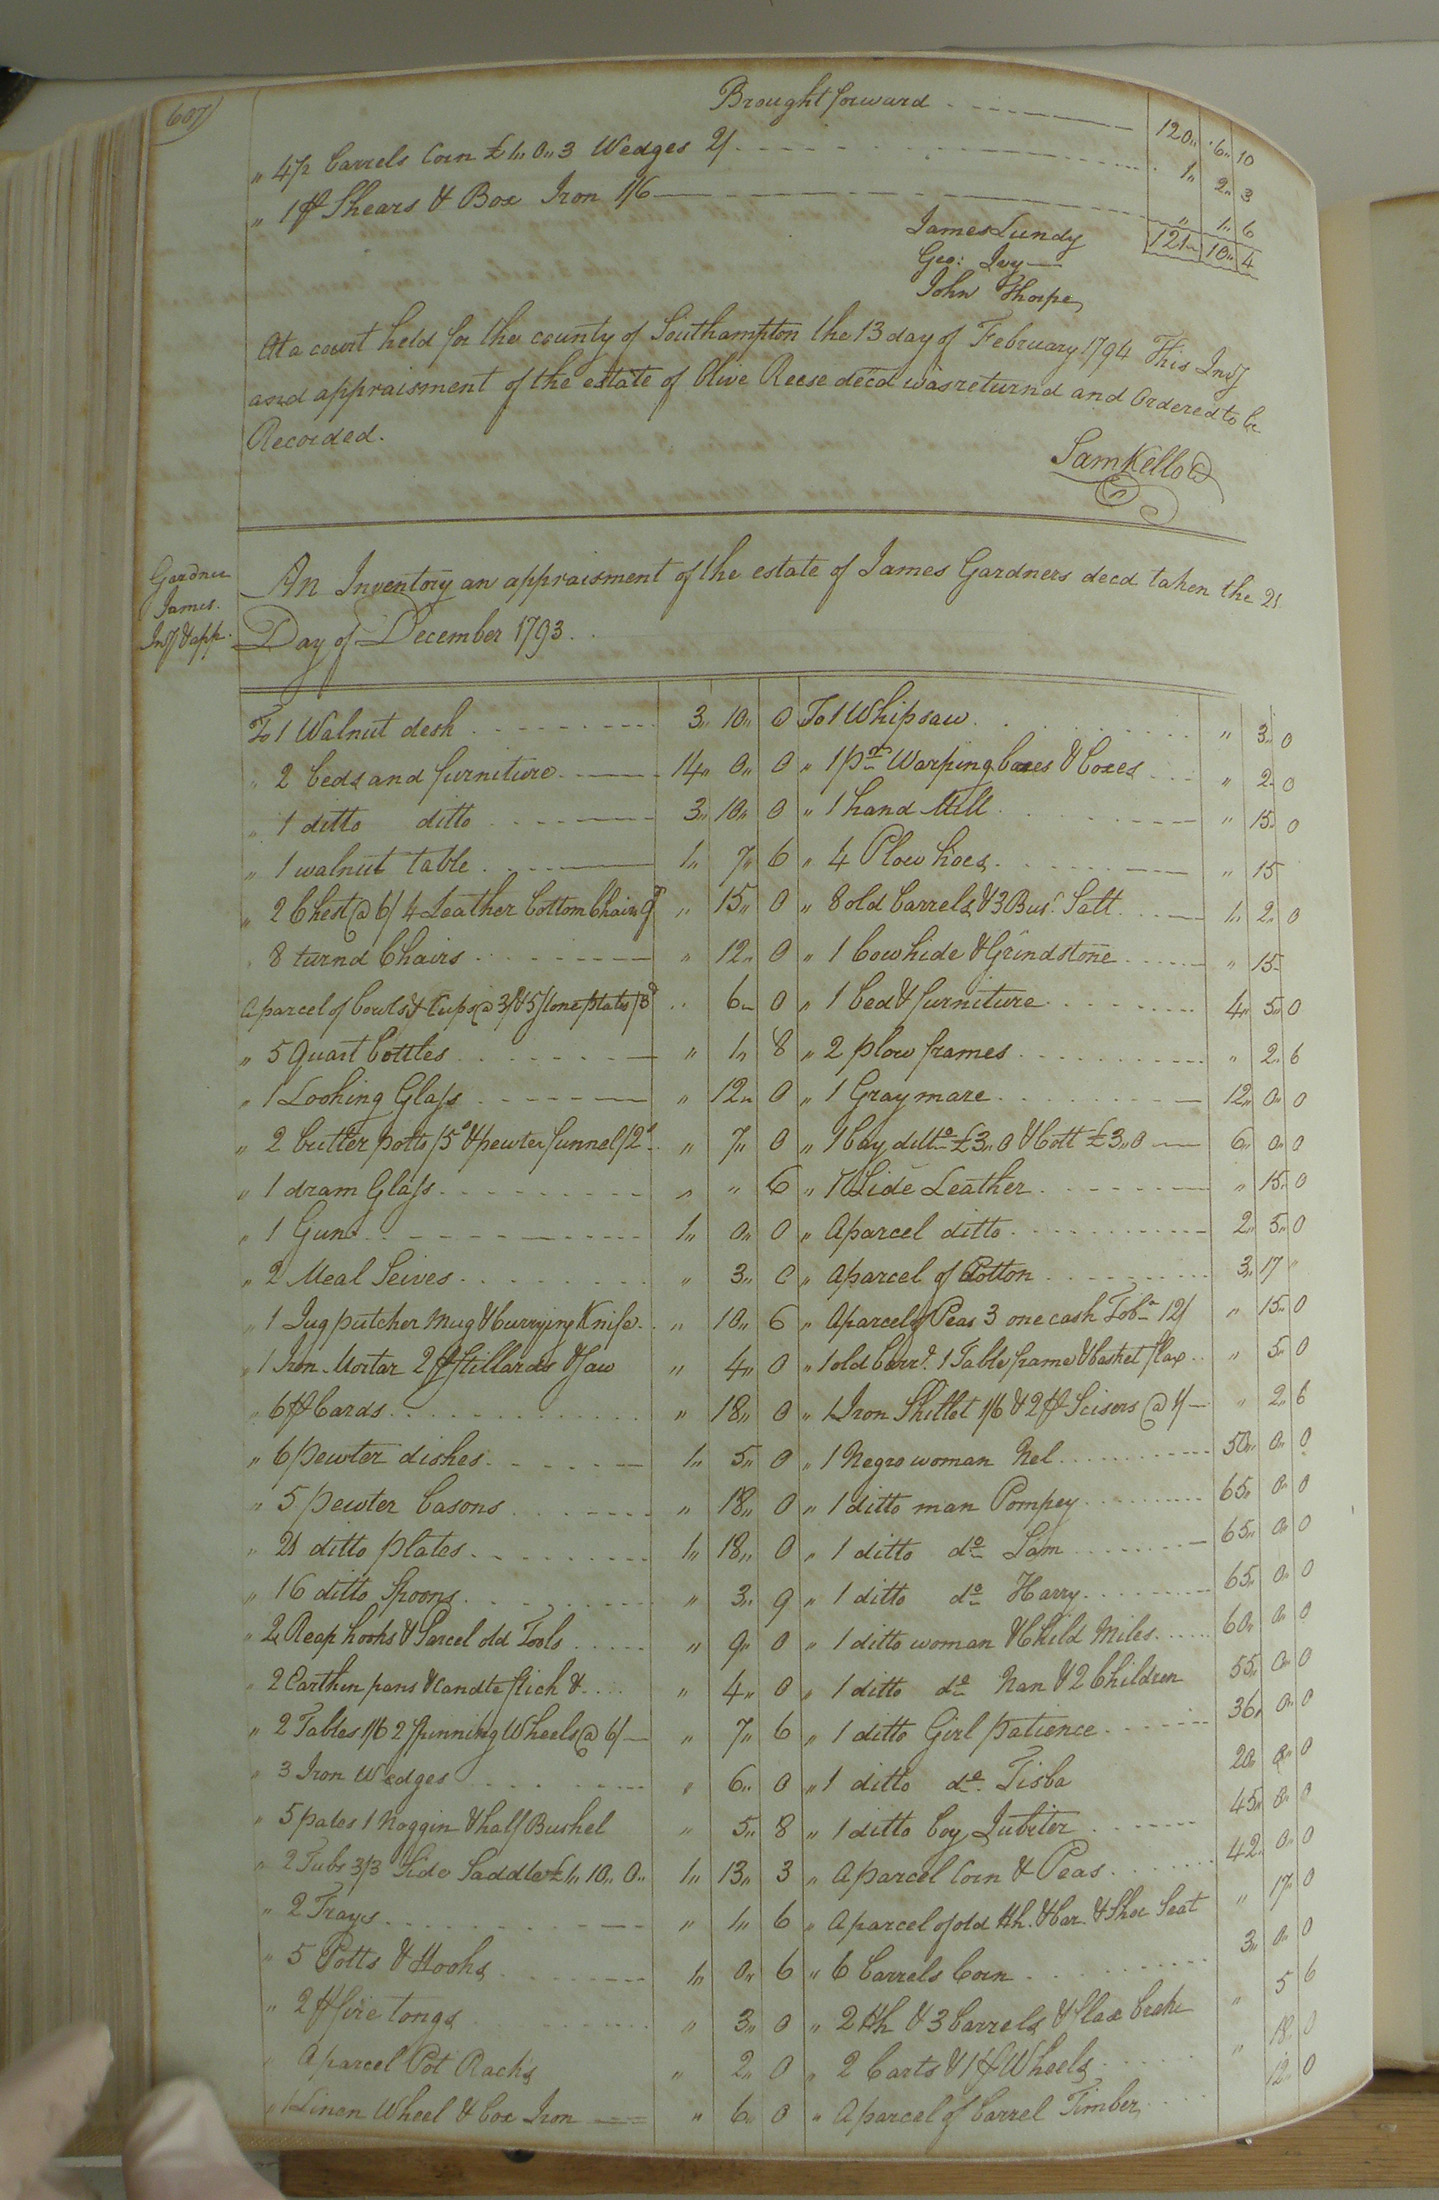 607)
Brought forward 120,, 6,, 10
,, 4½ barrels Corn £1,, 0,, 3 Wedges 2/ 1,, 2,, 3
,, 1 pr Shears & Box Iron 1/6 ,, 1,, 6
121,, 10,, 4
James Lundy
Geo: Ivy
John Thorpe
At a court held for the county of Southampton the 13 day of February 1794 This Invy
and appraisment of the estate of Olive Reese decd was returnd and Ordered to be
Recorded.
Sam Kello
Gardner
James.
Invy & app.
An Inventory an appraisment of the estate of James Gardners decd taken the 21
Day of December 1793.
To 1 Walnut desk 3,, 10,, 0
,, 2 beds and furniture 14,, 0,, 0
,, 1 ditto ditto 3,, 10,, 0
,, 1 walnut table 1,, 7,, 6
,, 2 Chest @ 6/ 4 Leather bottom Chairs ,, 15,, 0
8 turnd Chairs ,, 12,, 0
A parcel of bowls & Cups @ 3/ & 5 stone plates /3d ,, 6,, 0
,, 5 Quart bottles ,, 1,, 8
,, 1 Looking Glass ,, 12,, 0
,, 2 butter potts /5s & pewter funnel /2s ,, 7,, 0
,, 1 dram Glass ,, ,, 6
,, 1 Gun 1,, 0,, 0
,, 2 Meal Seives ,, 3,, 0
,, 1 Jug putcher Mug & Currying Knife ,, 10,, 6
,, 1 Iron Mortar 2 pr Stillards & Saw ,, 4,, 0
,, 6 pr Cards ,, 18,, 0
,, 6 pewter dishes 1,, 5,, 0
,, 5 pewter basons ,, 18,, 0
,, 21 ditto plates 1,, 18,, 0
,, 16 ditto Spoons ,, 3,, 9
,, 2 Reap hooks & Parcel old Tools ,, 9,, 0
,, 2 Earthen pans & Candle stick & ,, 4,, 0
,, 2 Tables 1/6 2 spinning Wheels @ 6/ ,, 7,, 6
,, 3 Iron Wedges ,, 6,, 0
,, 5 pales 1 Noggin & half Bushel ,, 5,, 8
,, 2 Tubs 3/3 Side Saddle £1,, 10,, 0,, 1,, 13,, 3
,, 2 Trays ,, 1,, 6
,, 5 Potts & Hooks 1,, 0,, 6
,, 2 pr fire tongs ,, 3,, 0
,, A parcel Pot Racks ,, 2,, 0
,, 1 Linen Wheel & box Iron ,, 6,, 0
To 1 Whipsaw ,, 3,, 0
,, 1 pr Warping boxes & boxes ,, 2,, 0
,, 1 hand Mill ,, 15,, 0
,, 4 Plow hoes ,, 15
,, 8 old barrels & 3 Bus. Salt 1,, 2,, 0
,, 1 Cowhide & Grindstone ,, 15
,, 1 bed & furniture 4,, 5,, 0
,, 2 plow frames ,, 2,, 6
,, 1 Gray mare 12,, 0,, 0
,, 1 bay ditto £3,, 0 & Colt £3,, 0 6,, 0,, 0
,, 1 Side Leather ,, 15,, 0
,, A parcel ditto 2,, 5,, 0
,, A parcel of Cotton 3,, 17 ,,
,, A parcel of Peas 3 one cask Toba 12/ ,, 15,, 0
,, 1 old barrl. 1 Table frame & basket flax ,, 5,, 0
,, 1 Iron Skillet 1/6 & 2 pr Scisors @ 1/ ,, 2,, 6
,, 1 Negro woman Nel 50,, 0,, 0
,, 1 ditto man Pompey 65,, 0,, 0
,, 1 ditto do Sam 65,, 0,, 0
,, 1 ditto do Harry 65,, 0,, 0
,, 1 ditto woman & Child Miles 60,, 0,, 0
,, 1 ditto do Nan & 2 Children 55,, 0,, 0
,, 1 ditto Girl patience 36,, 0,, 0
,, 1 ditto do Tisba 20,, 0,, 0
,, 1 ditto boy Jubiter 45,, 0,, 0
,, A parcel Corn & Peas 42,, 0,, 0
,, A parcel of old Hh. & bar. & Shoe Seat ,, 17,, 0
,, 6 barrels Corn 3,, 0,, 0
,, 2 Hh & 3 barrels & flax brake ,, 5 6
,, 2 Carts & 1 pr Wheels ,, 18,, 0
,, A parcel of barrel Timber 12,, 0